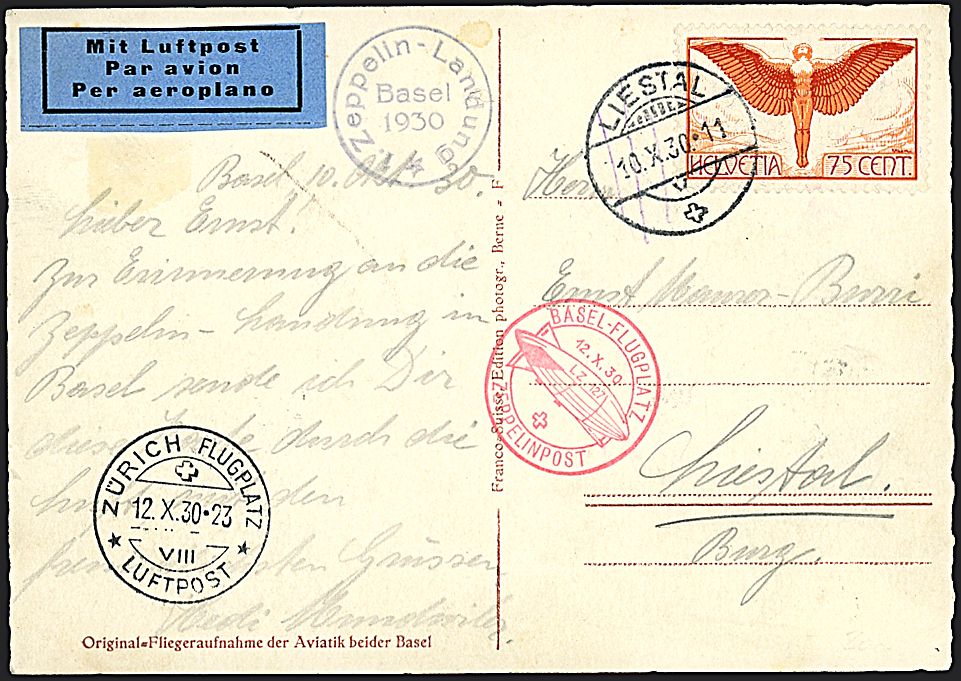 Mit Luftpost
Par avion
Per aeroplano
Zeppelin-Landung
Basel
1930
LIESTAL
10.X.30·11
V
HELVETIA 75 CENT.
Basel, 10. Okt. 30.
Lieber Ernst!
Zur Erinnerung an die
Zeppelin-Landung in
Basel sende ich Dir
diese Karte durch die
den
Grüssen
Herrn
Ernst Maurer-Burri
Liestal.
Burg.
BASEL-FLUGPLATZ
12.X.30
LZ 127
ZEPPELINPOST
ZÜRICH FLUGPLATZ
12.X.30·23
VIII
LUFTPOST
Franco-Suisse, Edition photogr., Berne = F
Original=Fliegeraufnahme der Aviatik beider Basel